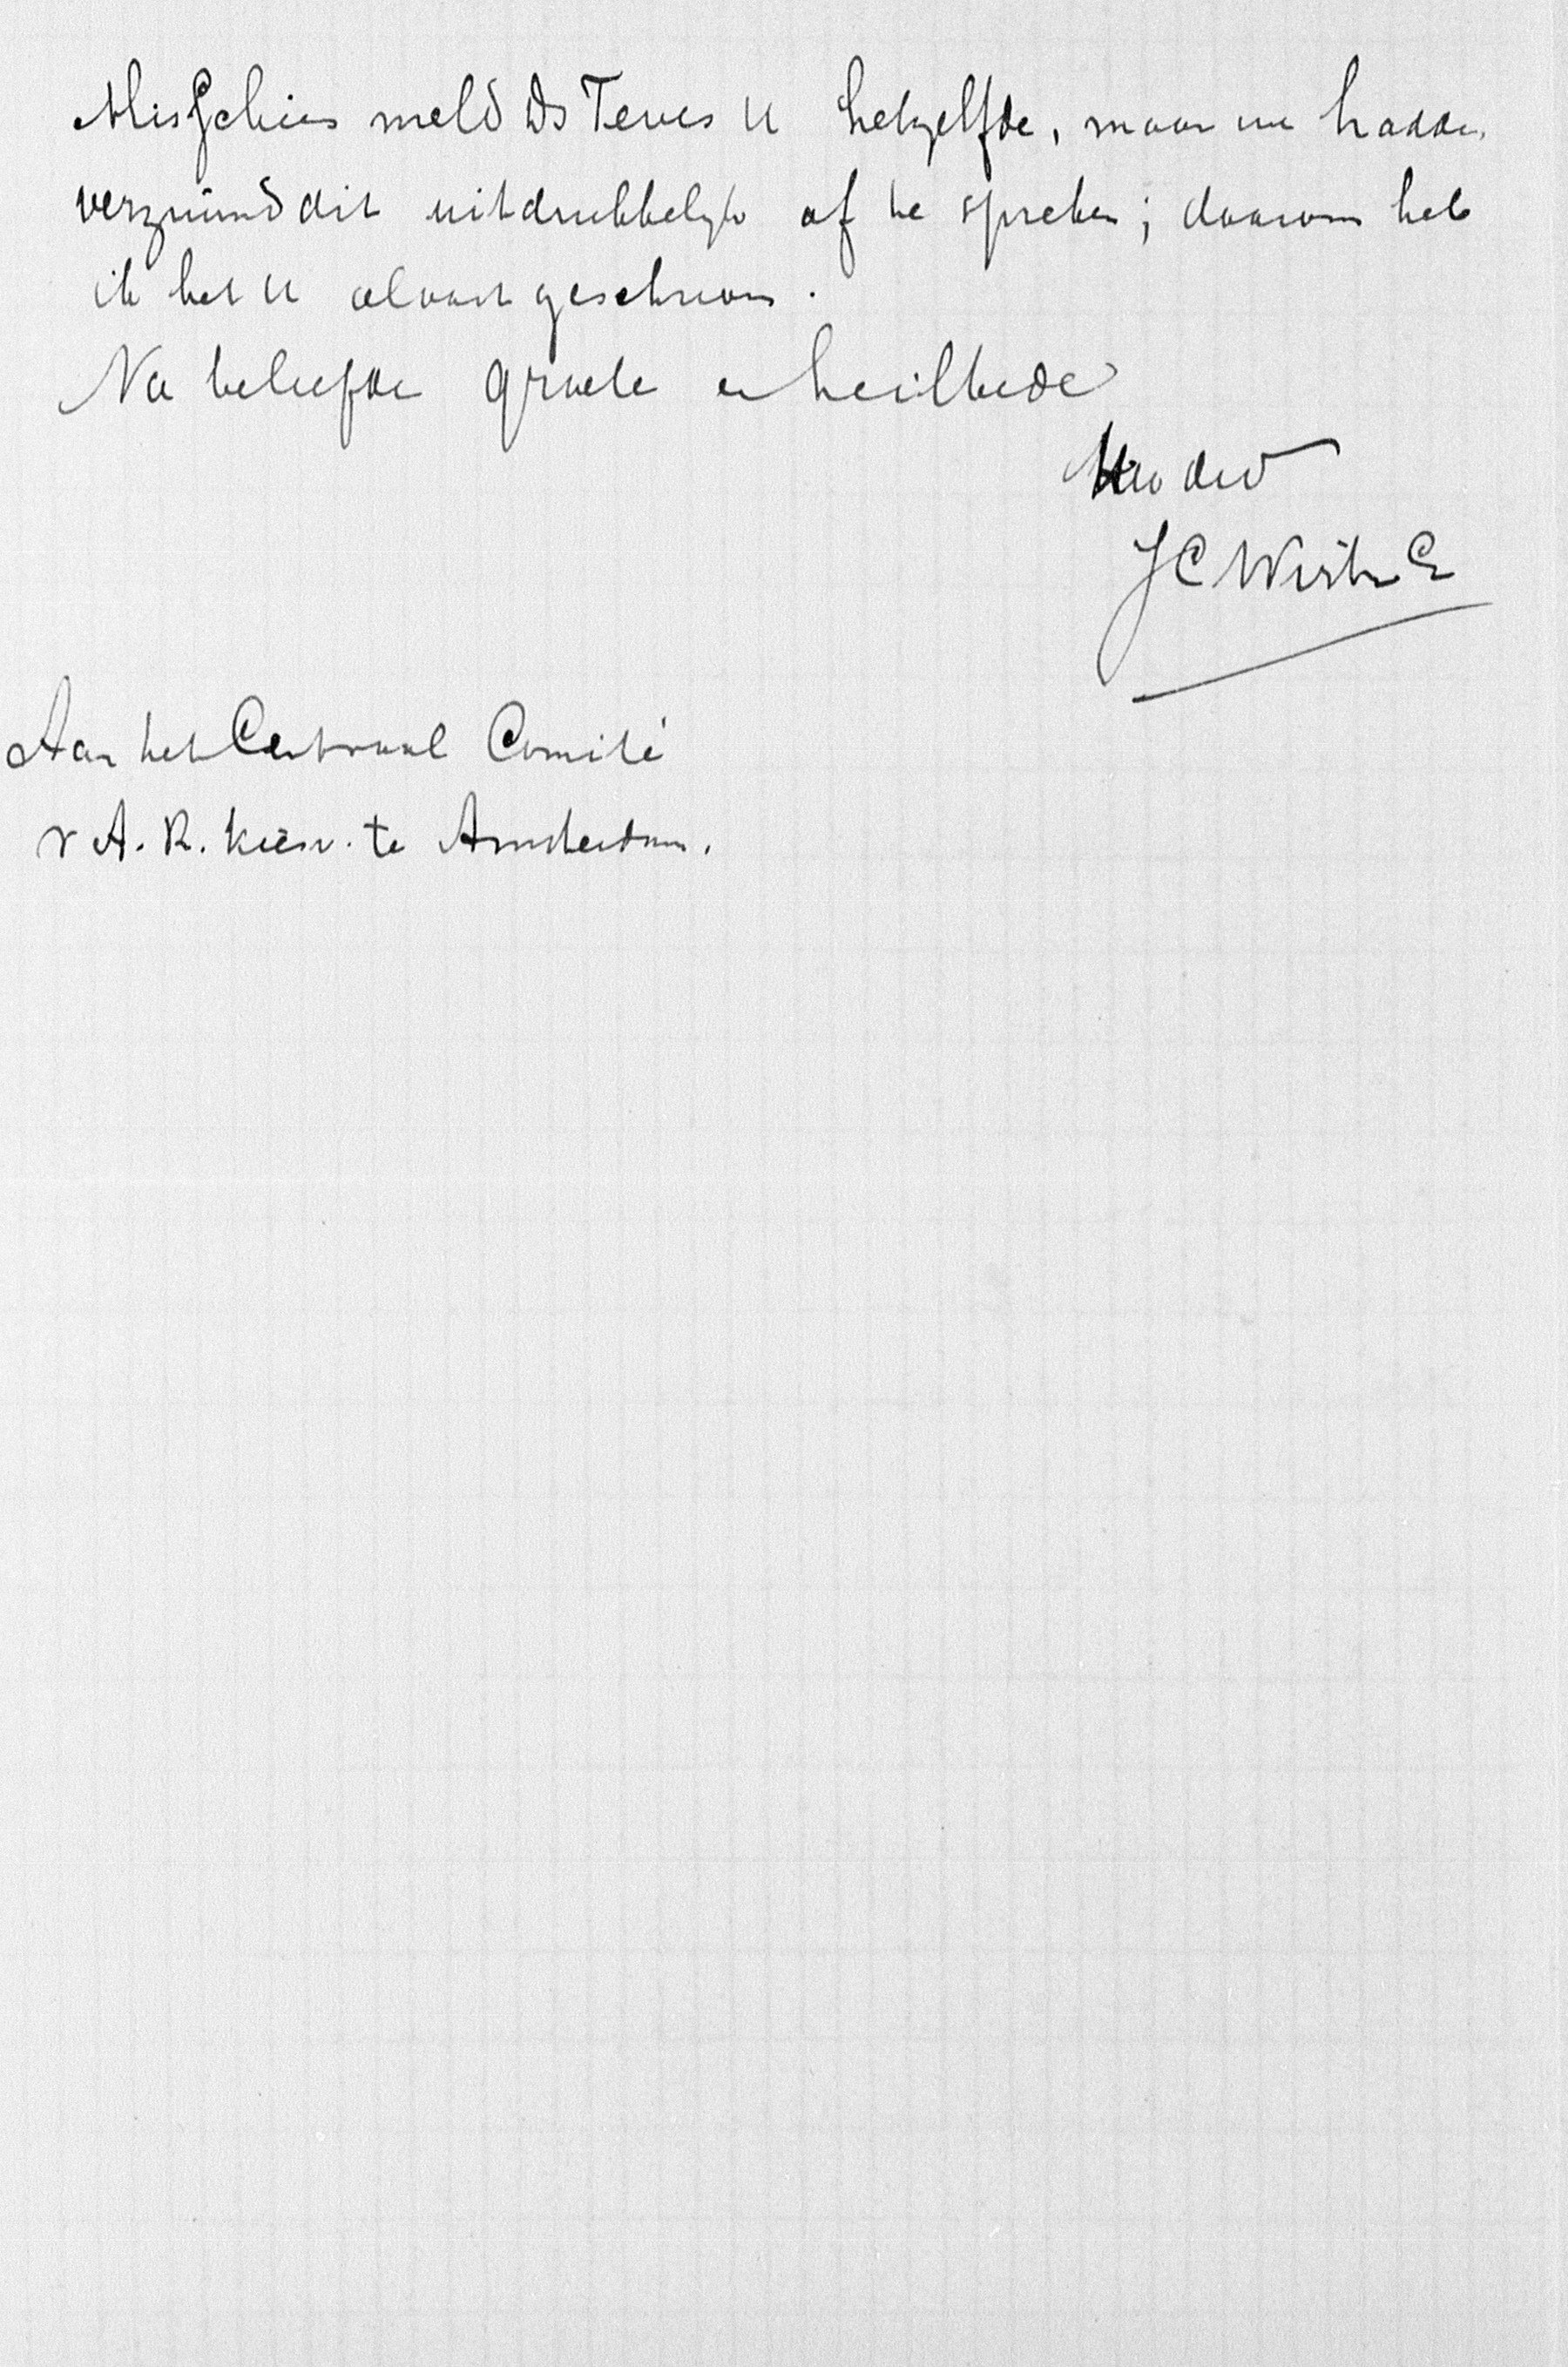 Misschien meld Ds Teves U hetzelfde, maar we hadden
verzuimd dit uitdrukkelijk af te spreken; daarom heb
ik het U alvast geschreven.
Na beleefde groete en heilbede
Uw dw
J C
Aan het Centraal Comité
v A. R. Kiesv. te Amsterdam.